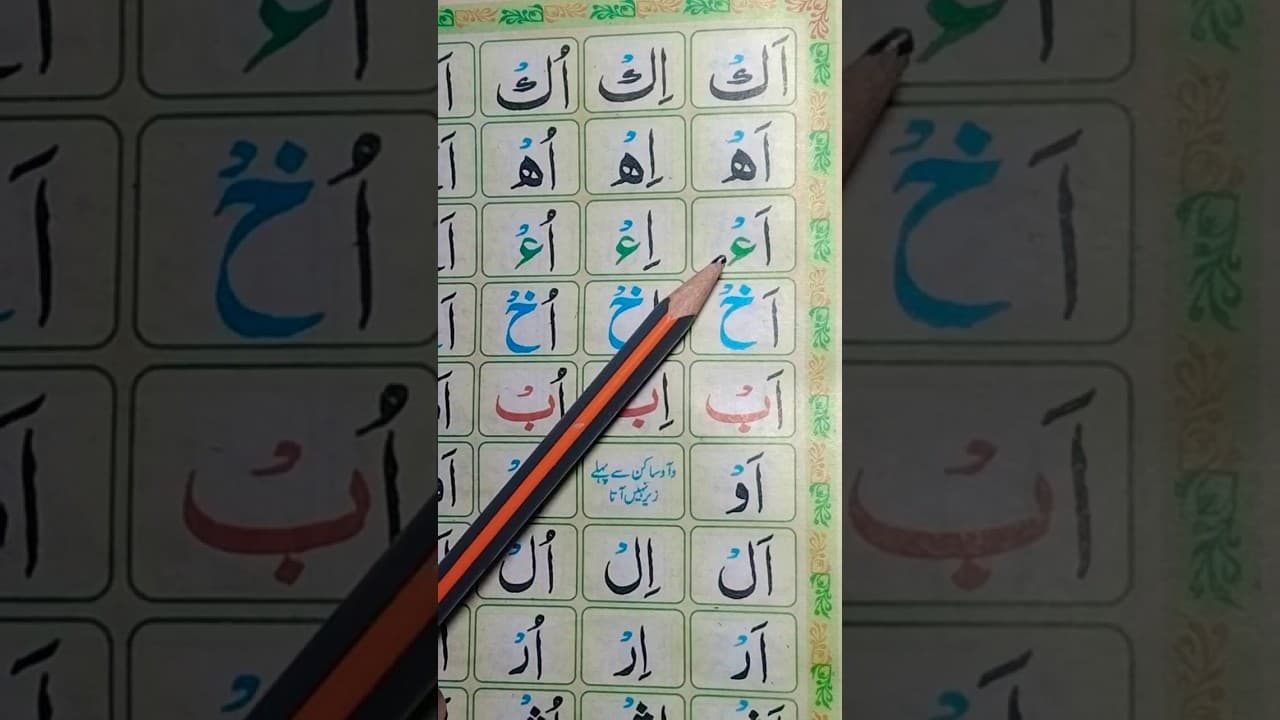 اَكْ اِكْ اُكْ
اَهْ اِهْ اُهْ
اَءْ اِءْ اُءْ
اَخْ اِخْ اُخْ
اَبْ اِبْ اُبْ
اَوْ واؤ ساکن سے پہلے
زیر نہیں آتا
اَلْ اِلْ اُلْ
اَرْ اِرْ اُرْ